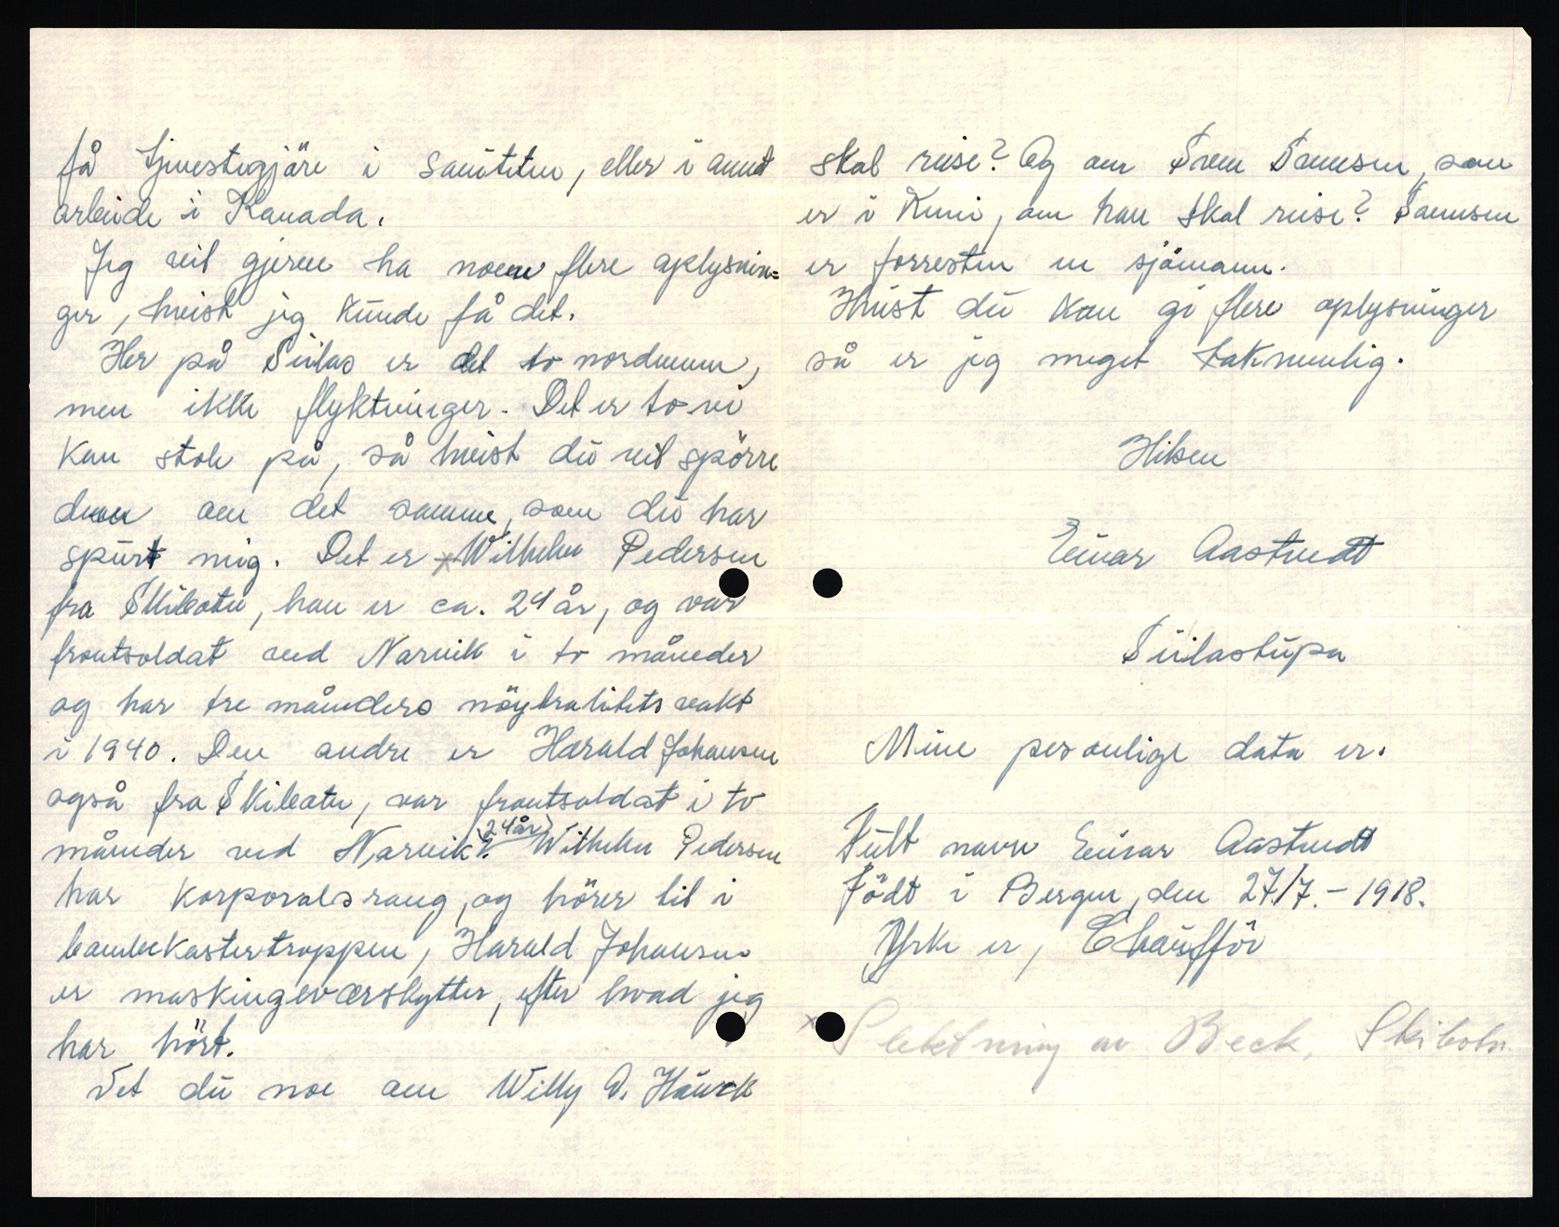 få tjenestegjøre i saniteten, eller i annet
arbeide i Kanada.
Jeg vil gjerne ha noen flere oplysnin=
ger, hvist jeg kunde få det.
Her på Siilas er det to nordmenn,
men ikke flyktninger. Det er to vi
kan stole på, så hvist du vil spörre
dem om det samme, som du har
spurt mig. Det er x Wilhelm Pedersen
fra Skibotn, han er ca. 24 år, og var
frontsoldat ved Narvik i to måneder
og har tre måneders nöytralitets vakt
i 1940. Den andre er Harald Johansen
også fra Skibotn, var frontsoldat i to
måneder ved Narvik. (24 år) Wilhelm Pedersen
har korporals rang, og hörer til i
bombekastertroppen, Harald Johansen
er maskingeværskytter, efter hvad jeg
har hört.
Vet du noe om Willy A. Hauck
skal reise? Og om Svem Svemsen, som
er i Kemi, om han skal reise? Svemsen
er forresten en sjömann.
Hvist du kan gi flere oplysninger
så er jeg meget takknemlig.
Hilsen
Einar Aastvedt
Siilastupa
Mine personlige data er.
Fullt navn Einar Aastvedt
Födt i Bergen, den 27/7. - 1918.
Yrke er, Chaufför
x Slektning av Beck, Skibotn.